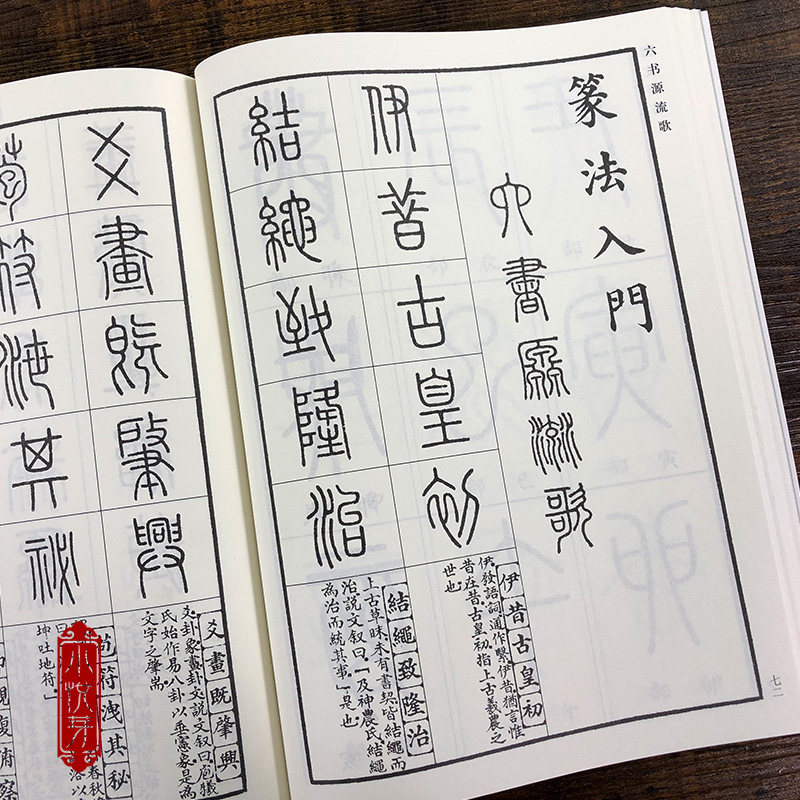 六书源流歌
七二
篆法入門
六書原流歌
伊昔古皇初
伊昔古皇初
伊，發語詞，通作繄，伊昔猶言惟
昔，在昔。古皇初指上古羲農之
世也。
結繩致隆治
結繩致隆治
上古草昧，未有書契，皆結繩而
治，說文叙曰「及神農氏結繩
為治而統其事」是也。
爻畫既肇興
爻畫既肇興
爻，卦象；畫，卦文，說文叙曰庖犧
氏始作易八卦以垂憲象，是為
文字之肇耑
苞符洩其祕
苞符洩其秘
坤吐地符。」